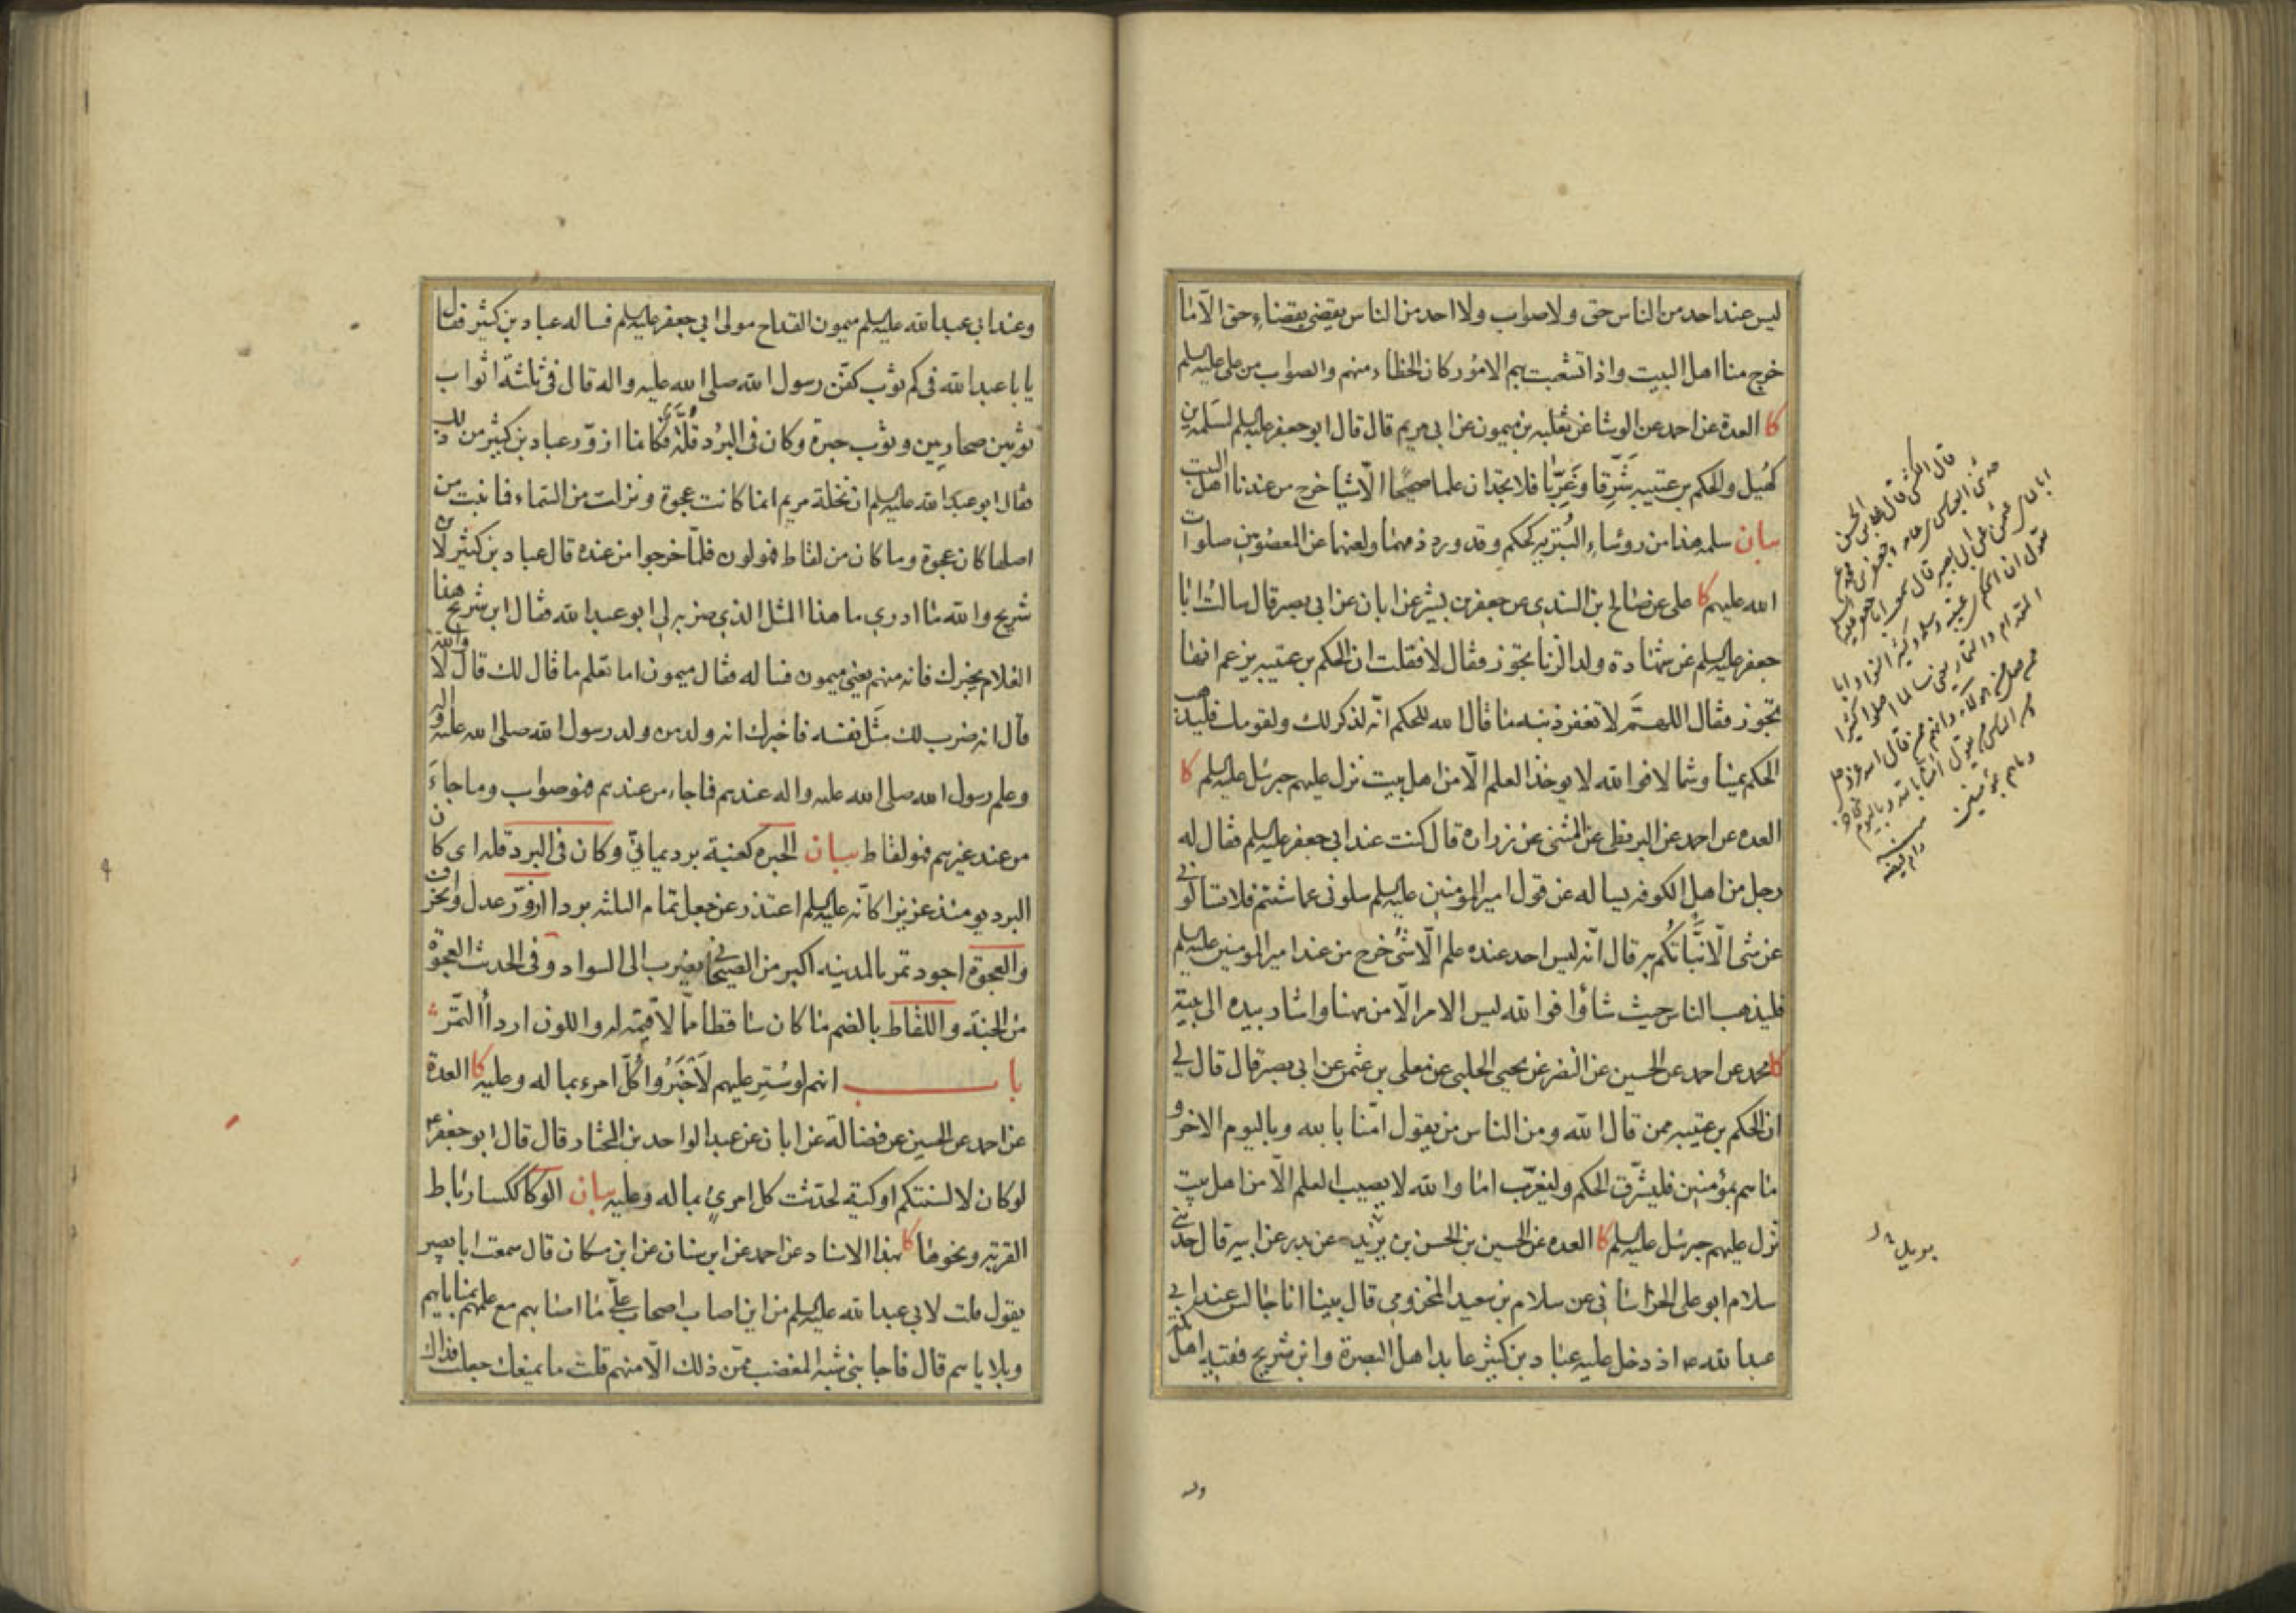 ليس عند احد من الناس حق ولا صواب ولا احد من الناس يقضى بقضاء حق الا ما
خرج منا اهل البيت واذا تشعبت بهم الامور كان الخطاء منهم والصواب من على عليه السلم
كا العدة عن احمد عن الوشا عن ثعلبه بن ميمون عن ابى مريم قال قال ابو جعفر عليه السلم لسلمه بن
كهيل والحكم بن عتيبه شَرِّقا وغَرِّبا فلا تجدان علما صحيحا الا شيا خرج من عندنا اهل البيت
بيان سلمه هذا من روساء البُتريه كالحكم وقد ورد ذمهما ولعنهما عن المعصومين صلوات
الله عليهم كا على عن صالح بن السندى عن جعفر بن بشير عن ابان عن ابى بصير قال سالت ابا
جعفر عليه السلم عن شهادة ولد الزنا تجوز فقال لا فقلت ان الحكم بن عتيبه يزعم انها
تجوز فقال اللهم لا تغفر ذنبه ما قال الله للحكم انه لذكر لك ولقومك فليذهب
الحكم يمينا وشمالا فوالله لا يوخذ العلم الا من اهل بيت نزل عليهم جبرئيل عليه السلم كا
العده عن احمد عن البزنطى عن المثنى عن زراره قال كنت عند ابى جعفر عليه السلم فقال له
رجل من اهل الكوفه يساله عن قول امير المومنين عليه السلم سلونى عما شئتم فلا تسالونى
عن شى الا نبّاتكم به قال انه ليس احد عنده علم الا شئ خرج من عند امير المومنين عليه السلم
فليذهب الناس حيث شاؤا فوالله ليس الامر الا من ههنا واشار بيده الى بيته
كا محمد عن احمد عن الحسين عن النضر عن يحيى الحلبى عن معلى بن عثمن عن ابى بصير قال قال لى
ان الحكم بن عتيبه ممن قال الله ومن الناس من يقول امنا بالله وباليوم الاخر و
ما هم بمؤمنين فليشرّق الحكم وليغرّب اما والله لا يصيب العلم الا من اهل بيت
نزل عليهم جبرئيل عليه السلم كا العده عن الحسين بن الحسن بن يزيد عن بدر عن ابيه قال حدثنى
سلام ابو على الخراسانى عن سلام بن سعيد المخزومى قال بينا انا جالس عند ابى
عبد الله عه اذ دخل عليه عباد بن كثير عابد اهل البصرة وابن شريح فقيه اهل مكة
وعند ابى عبد الله عليه السلم ميمون القداح مولى ابى جعفر عليه السلم فساله عباد بن كثير فقال
يابا عبد الله فى كم ثوب كفن رسول الله صلى الله عليه واله قال فى ثلثة اثواب
ثوبين صحاريين وثوب حبرة وكان فى البُرد قلّة فكانما ازورّ عباد بن كثير من ذلك
فقال ابو عبد الله عليه السلم ان نخلة مريم انما كانت عجوة ونزلت من السماء فما نبت من
اصلها كان عجوة وما كان من لقاط فهو لون فلمّا خرجوا من عنده قال عباد بن كثير لابن
شريح والله ما ادرى ما هذا المثل الذى ضربه لى ابو عبد الله فقال ابن شريح هذا
الغلام يخبرك فانه منهم يعنى ميمون فساله فقال ميمون اما تعلم ما قال لك قال لا والله
قال انه ضرب لك مَثَل نفسه فاخبرك انه ولد من ولد رسول الله صلى الله عليه واله
وعلم رسول الله صلى الله عليه واله عندهم فما جاء من عندهم فهو صواب وما جاءَ
من عند غيرهم فهو لقاط بيان الحبره كعنبة برد يمانىّ وكان فى البرد قله اى كان
البرد يومئذ عزيزا كانه عليه السلم اعتذر عن جعل تمام الثلثه بردا ازورّ عدل وانحرف
والعجوة اجود تمر بالمدينه اكبر من الصيحانى يضرب الى السواد وفى الحديث العجوة
من الجنة واللقاط بالضم ما كان ساقطا مما لا قيمة له واللون اردأ التمر
باب انهم لو سُتِر عليهم لاخبروا كلّ امرء بما له وعليه كا العدة
عن احمد عن الحسين عن فضالة عن ابان عن عبد الواحد بن المختار قال قال ابو جعفر ع
لو كان لالسنتكم اوكية لحدثت كل امرئ بما له وعليه بيان الوكا ككسا رباط
القربة ونحوها كا بهذا الاسناد عن احمد عن ابن سنان عن ابن مسكان قال سمعت ابا بصير
يقول قلت لابى عبد الله عليه السلم من اين اصاب اصحاب علىّ ما اصابهم مع علمهم بمناياهم
وبلاياهم قال فاجابنى شبه المغضب ممّن ذلك الا منهم قلت ما يمنعك جعلت فداك